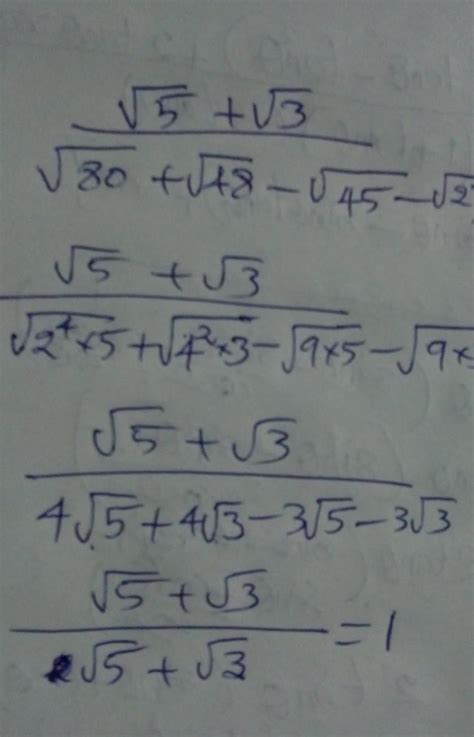 √5 + √3
√80 + √48 - √45 - √2
√5 + √3
√2⁴×5 + √4²×3 - √9×5 - √9×
√5 + √3
4√5 + 4√3 - 3√5 - 3√3
√5 + √3
√5 + √3 = 1